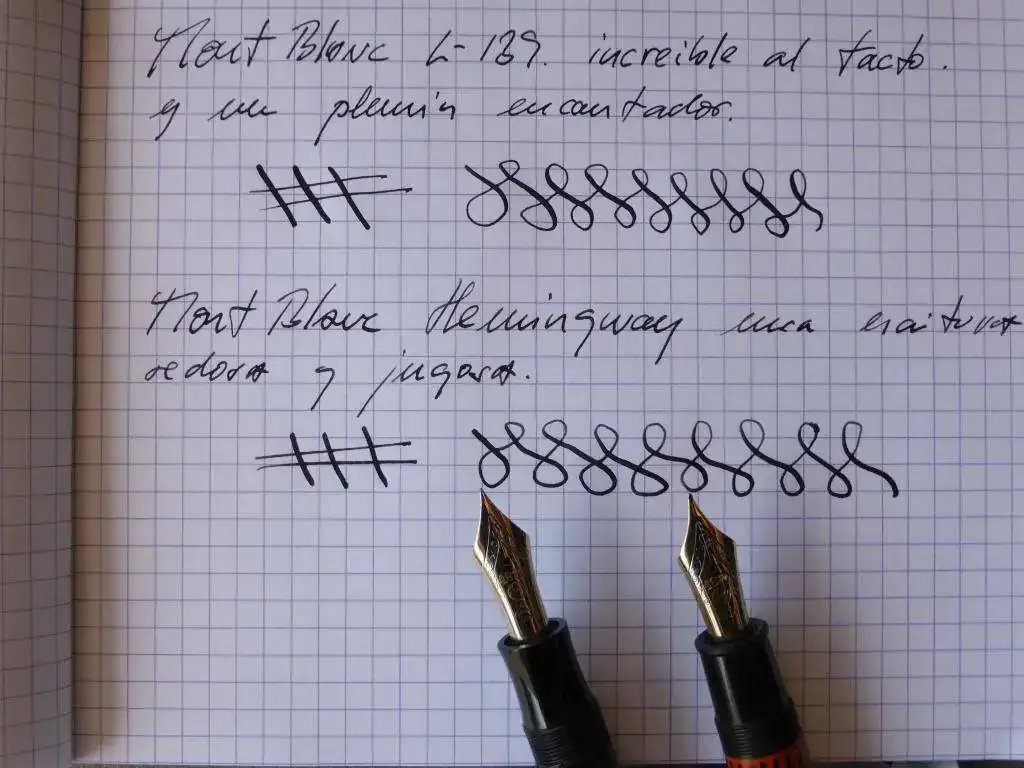 Mont Blanc L-139. increible al tacto.
y un plumin encantador.
Mont Blanc Hemingway una escritura
sedosa y jugosa.